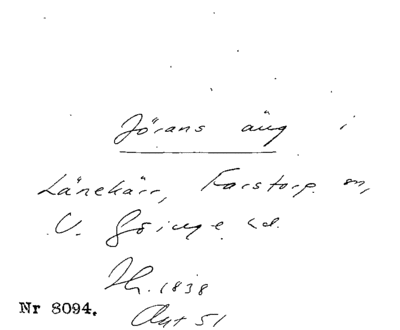 Jörans äng i
Länekärr, Farstorp sn,
V. Göinge hd.
Th. 1838
Nr 8094.
Akt 51